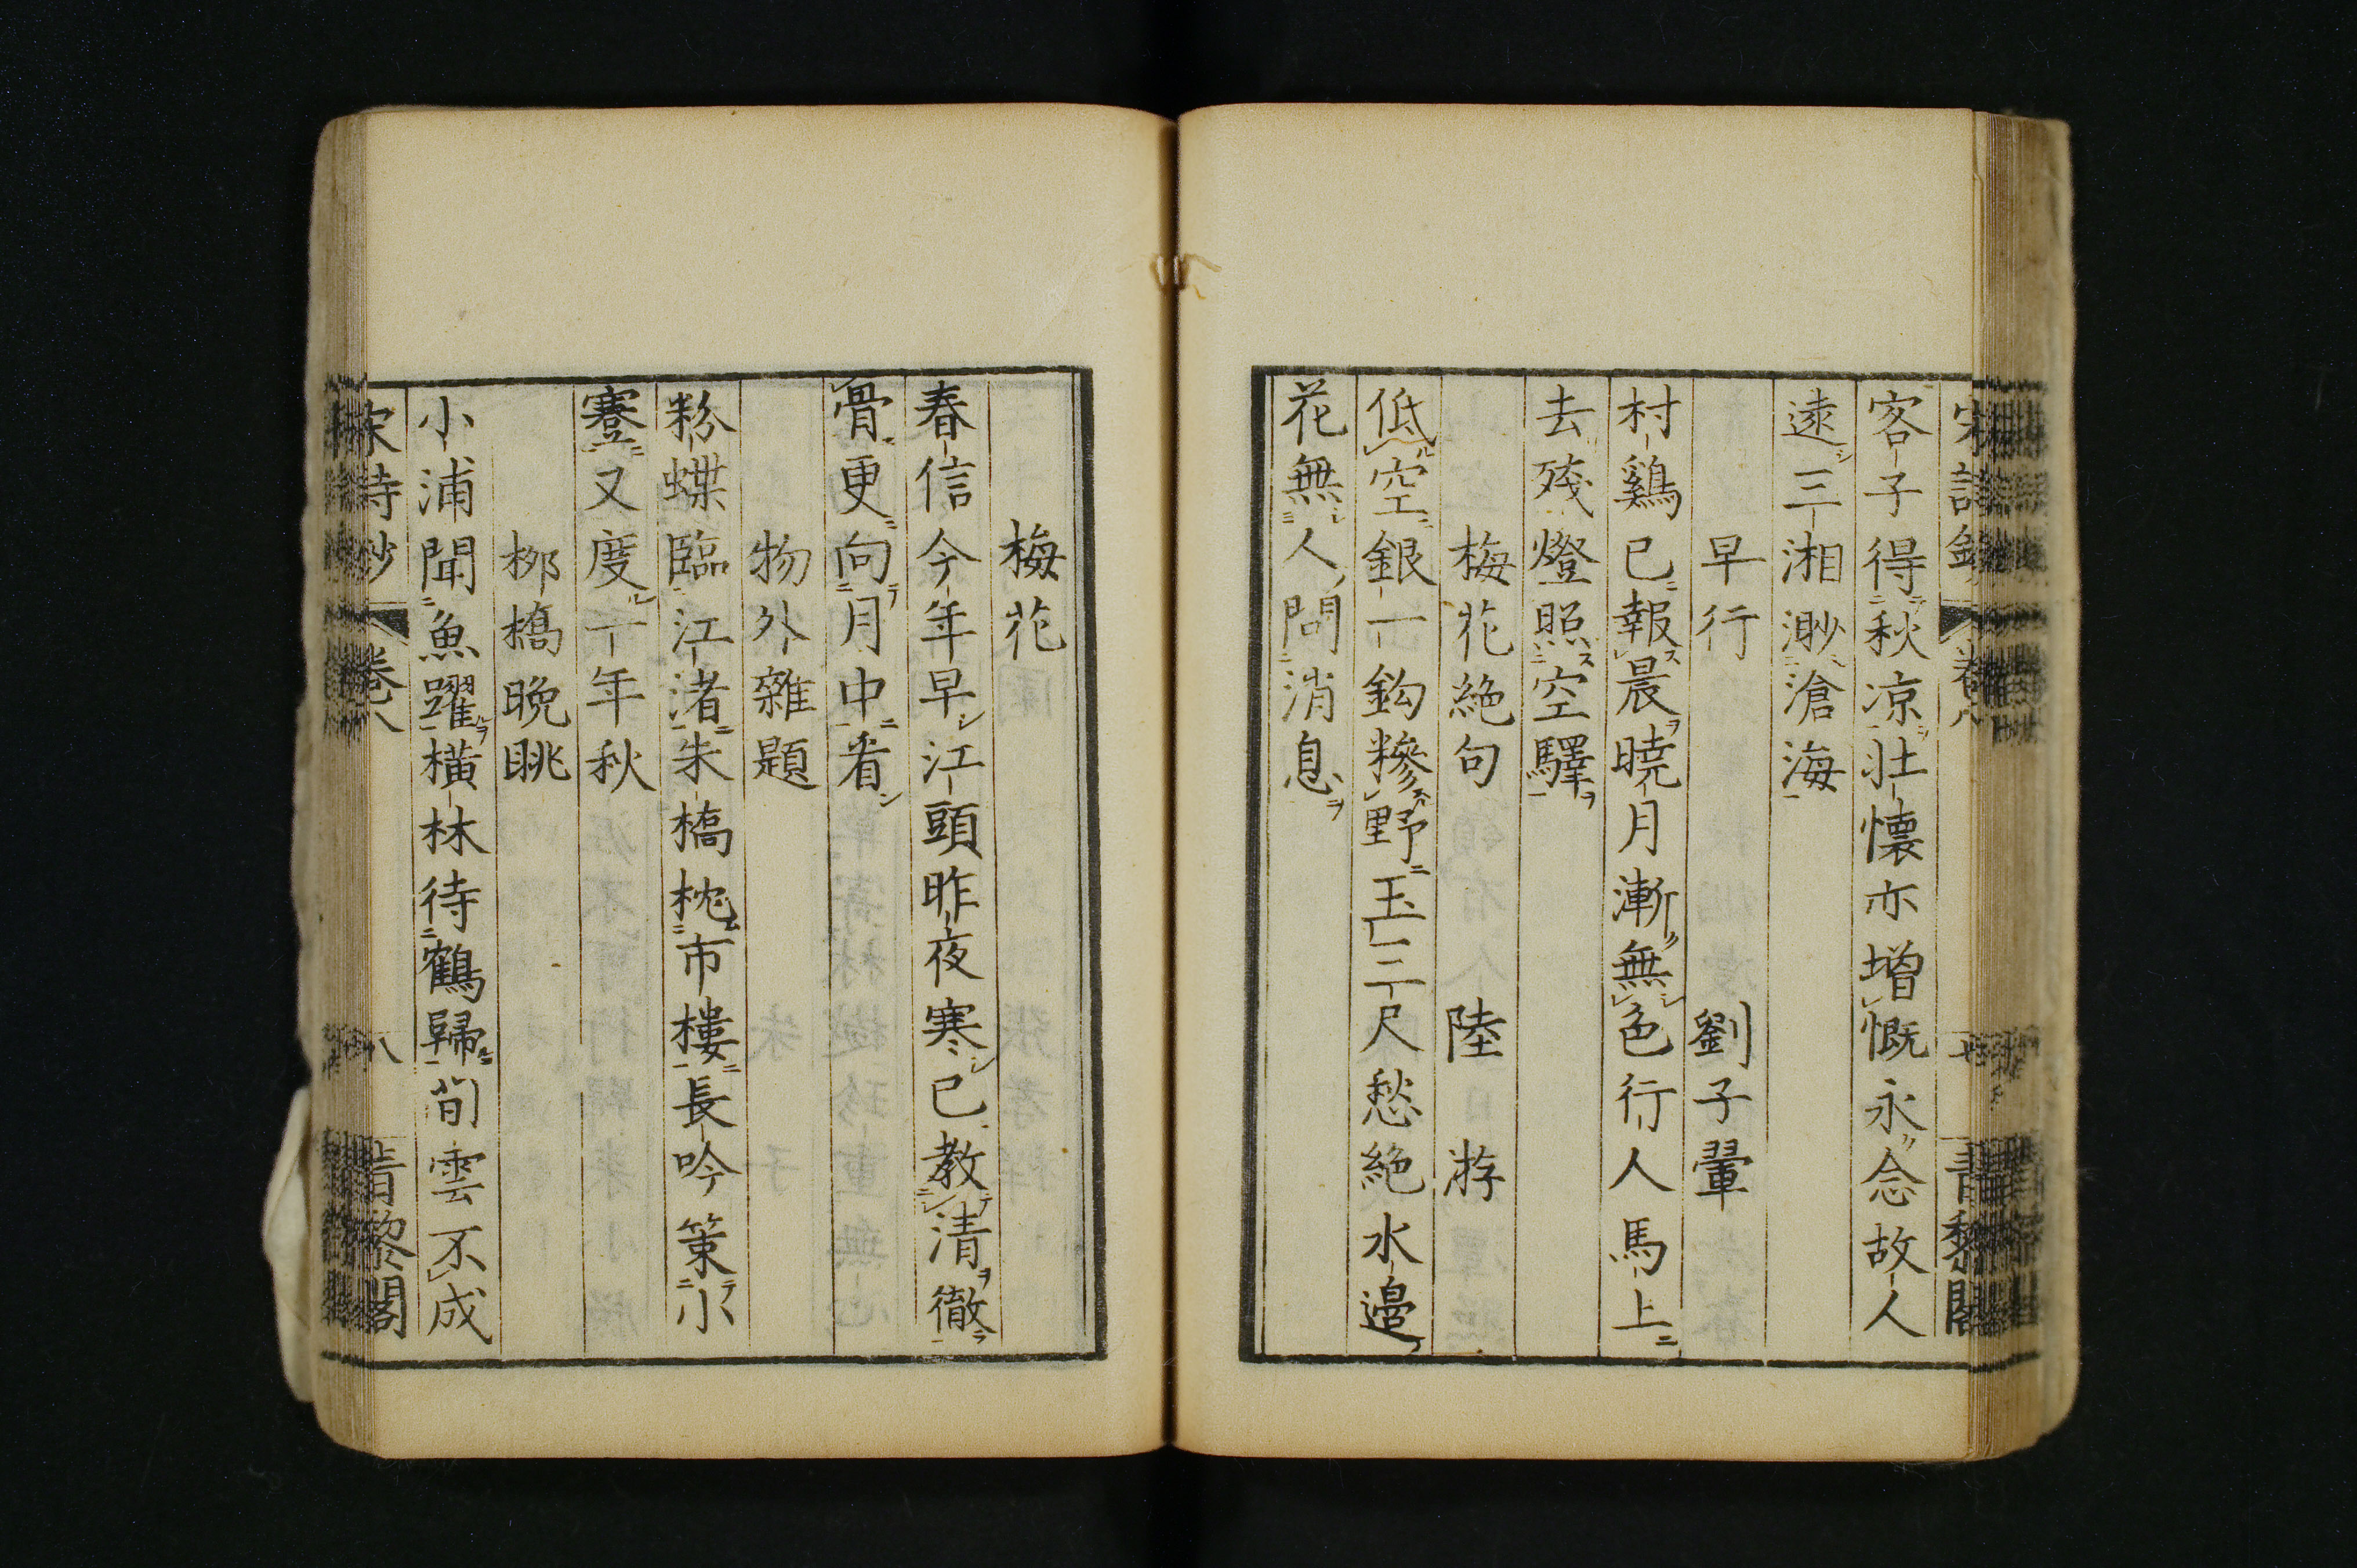 客子得秋凉壮懷亦增慨永念故人
遠三湘渺滄海
早行　劉子翬
村鷄已報晨曉月漸無色行人馬上
去殘燈照空驛
梅花絶句　陸游
低空銀一鈎糝野玉三尺愁絶水邉
花無人問消息
梅花
春信今年早江頭昨夜寒已教清徹
骨更向月中看
物外雜題
粉蝶臨江渚朱橋枕市樓長吟策小
蹇又度一年秋
柳橋晩眺
小浦聞魚躍橫林待鶴歸閒雲不成
宋詩鈔　卷八　八　青黎閣